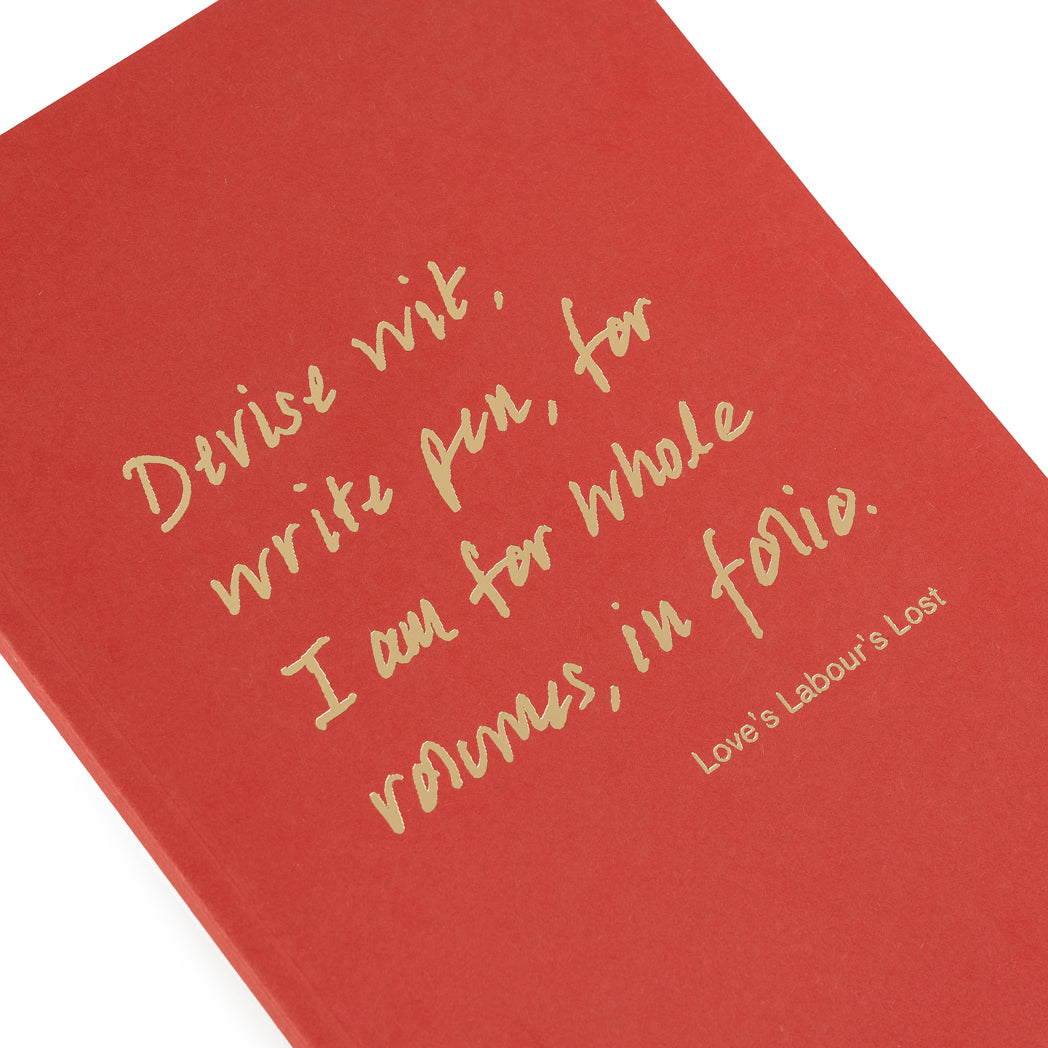 Devise wit,
write pen, for
I am for whole
volumes, in folio.
Love's Labour's Lost